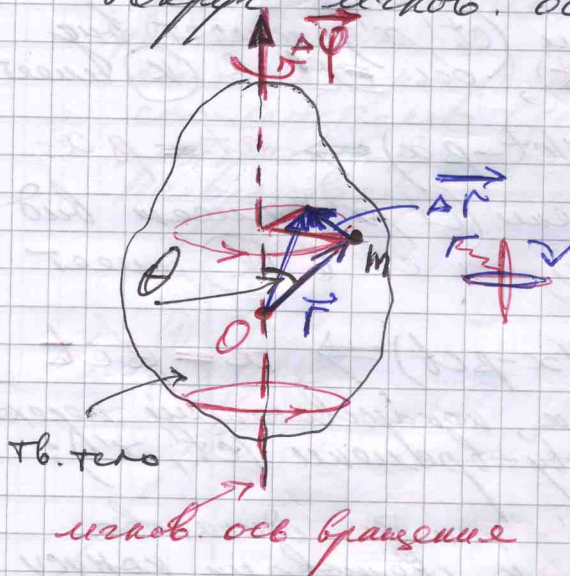 вокруг мгнов. ос
Δφ
Δr
m
θ
r
O
тв. тело
мгнов. ось вращения